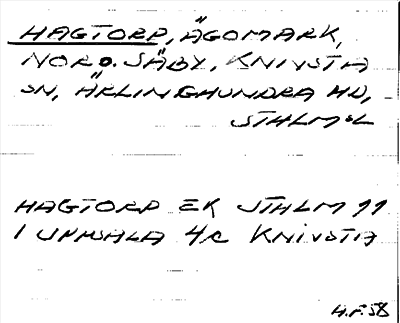 HAGTORP, ÄGOMARK,
NORD. SÄBY, KNIVSTA
SN, ÄRLINGHUNDRA HD,
STHLMS L
HAGTORP EK STHLM 99
1 UPPSALA 4c KNIVSTA
H.F. 58